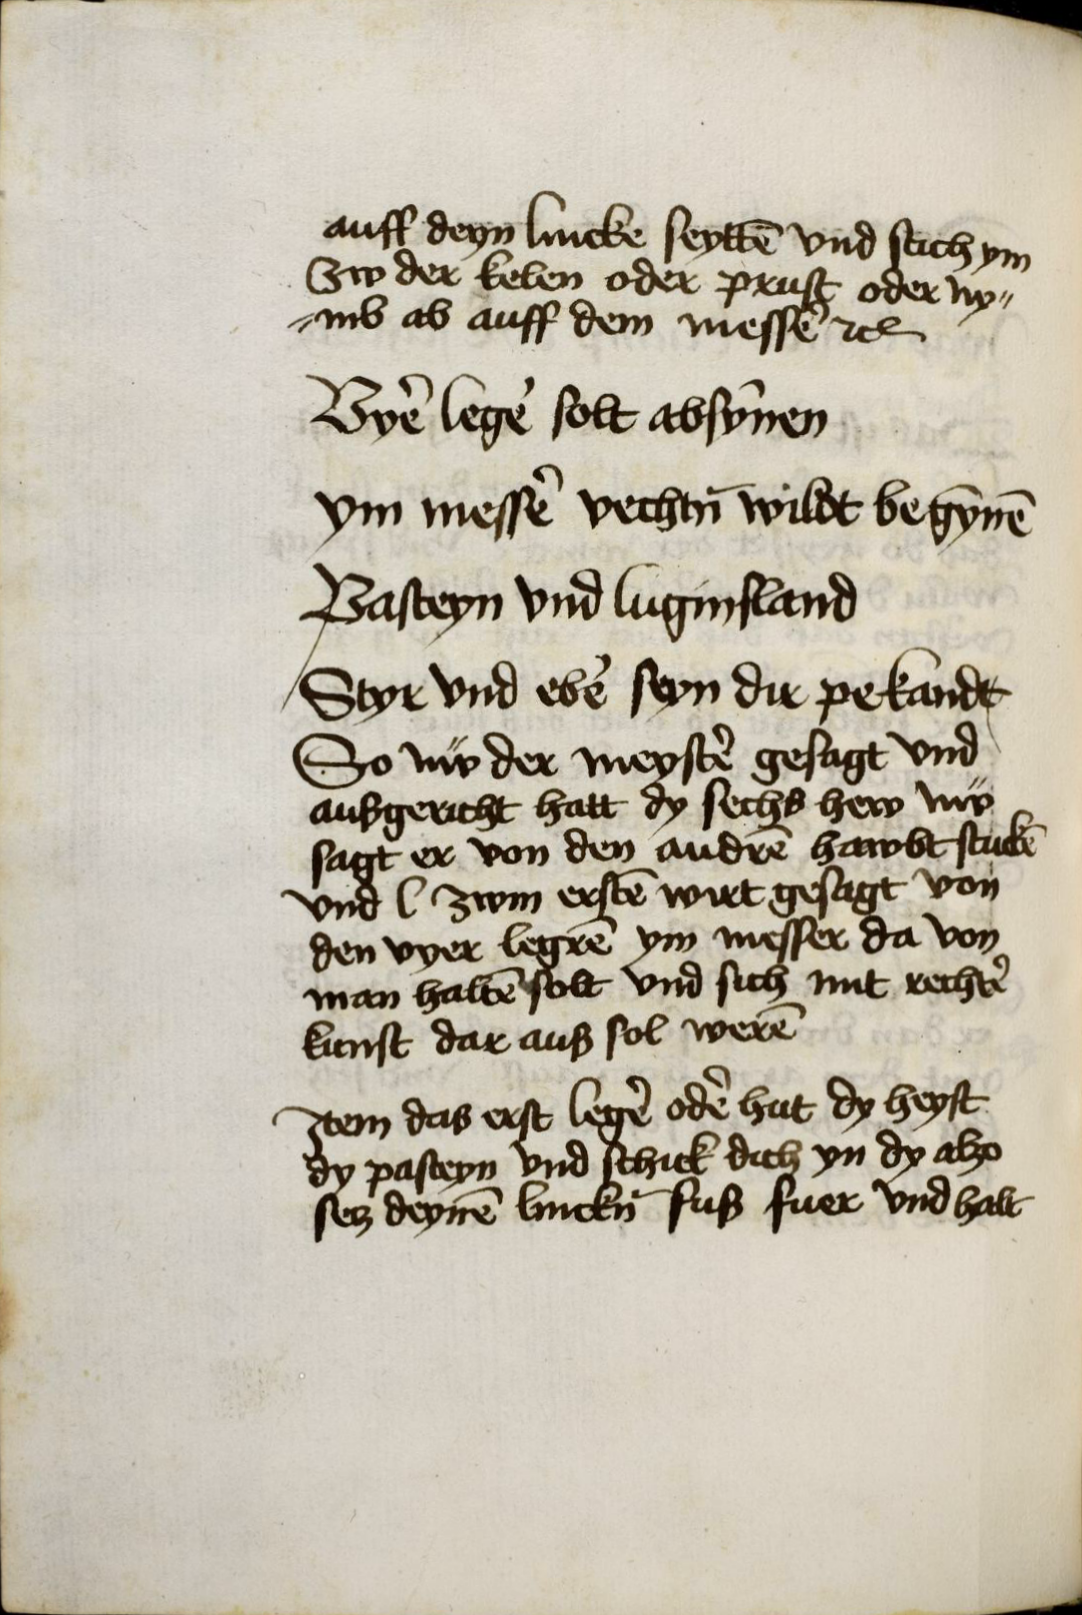 auff deyn lincke seyttē vnd stich ym
Zw der kelen oder prust oder ny„
„mb ab auff dem messer̄ ⁊cꝭ
Vyer̄ leger̄ solt absȳnen
ym messer̄ vechtn̄ wildt begȳnē
Pasteyn vnd luginsland
Styr vnd ebē seyn dir pekandt
So nw̎ der meyster̄ gesagt vnd
auszgericht hatt dy sechs hew nw̎
sagt er von den andrē hawbt stuckē
vnd l zwm erstē wirt gesagt von
den vyer legrē ym messer da von
man haltē solt vnd sich mit rechter̄
kunst dar ausz sol werē
Item das erst leger̄ oder̄ hut dy heyst
dy pasteyn vnd schick dich yn dy alzo
secz deynē linckn̄ fusz fuer vnd halt